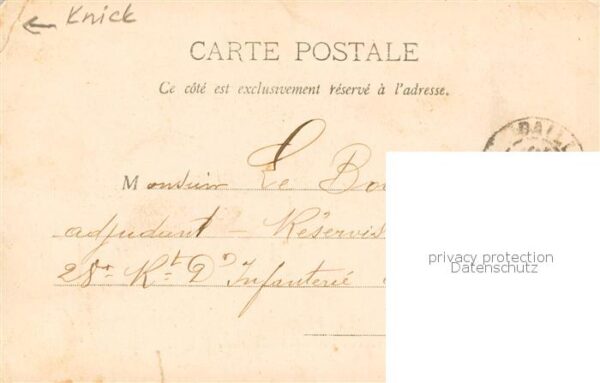 Knick
CARTE POSTALE
Ce côté est exclusivement réservé à l'adresse.
Monsieur Le Bou
adjudant - Réservis
28e Rt D' Infanterie
privacy protection
Datenschutz